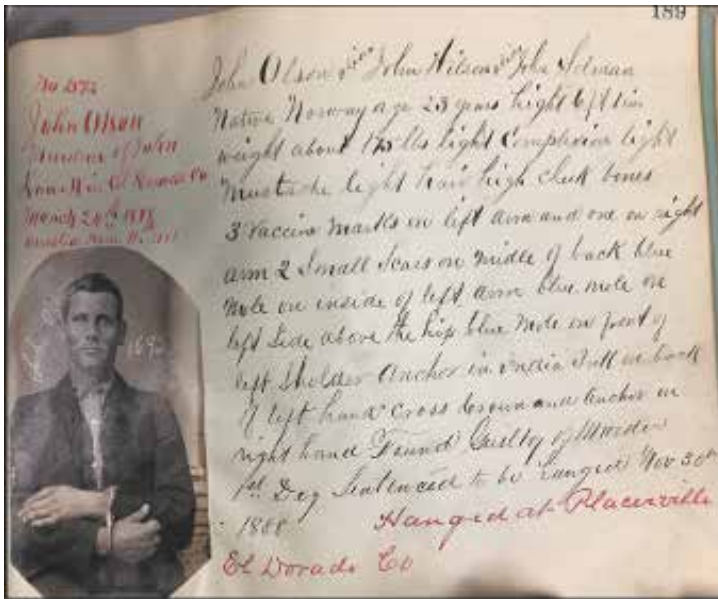 189
John Olson
Murderer of John
March 24th 1888
John Olson alias John Wilson alias John Selman
Native Norway age 23 years hight 6 ft 1 in
weight about 175 lbs light Complexion light
Mustache light hair high cheek bones
3 Vaccine Marks on left arm and one on right
arm 2 Small Scars on middle of back blue
mole on inside of left arm blue mole on
left Side above the hip blue Mole on front of
left Sholder Anchor in India Ink on back
of left hand Cross Crown and Anchor on
right hand Found Guilty of Murder
1st Deg Sentenced to be hanged Nov 30th
1888
Hanged at Placerville
El Dorado Co